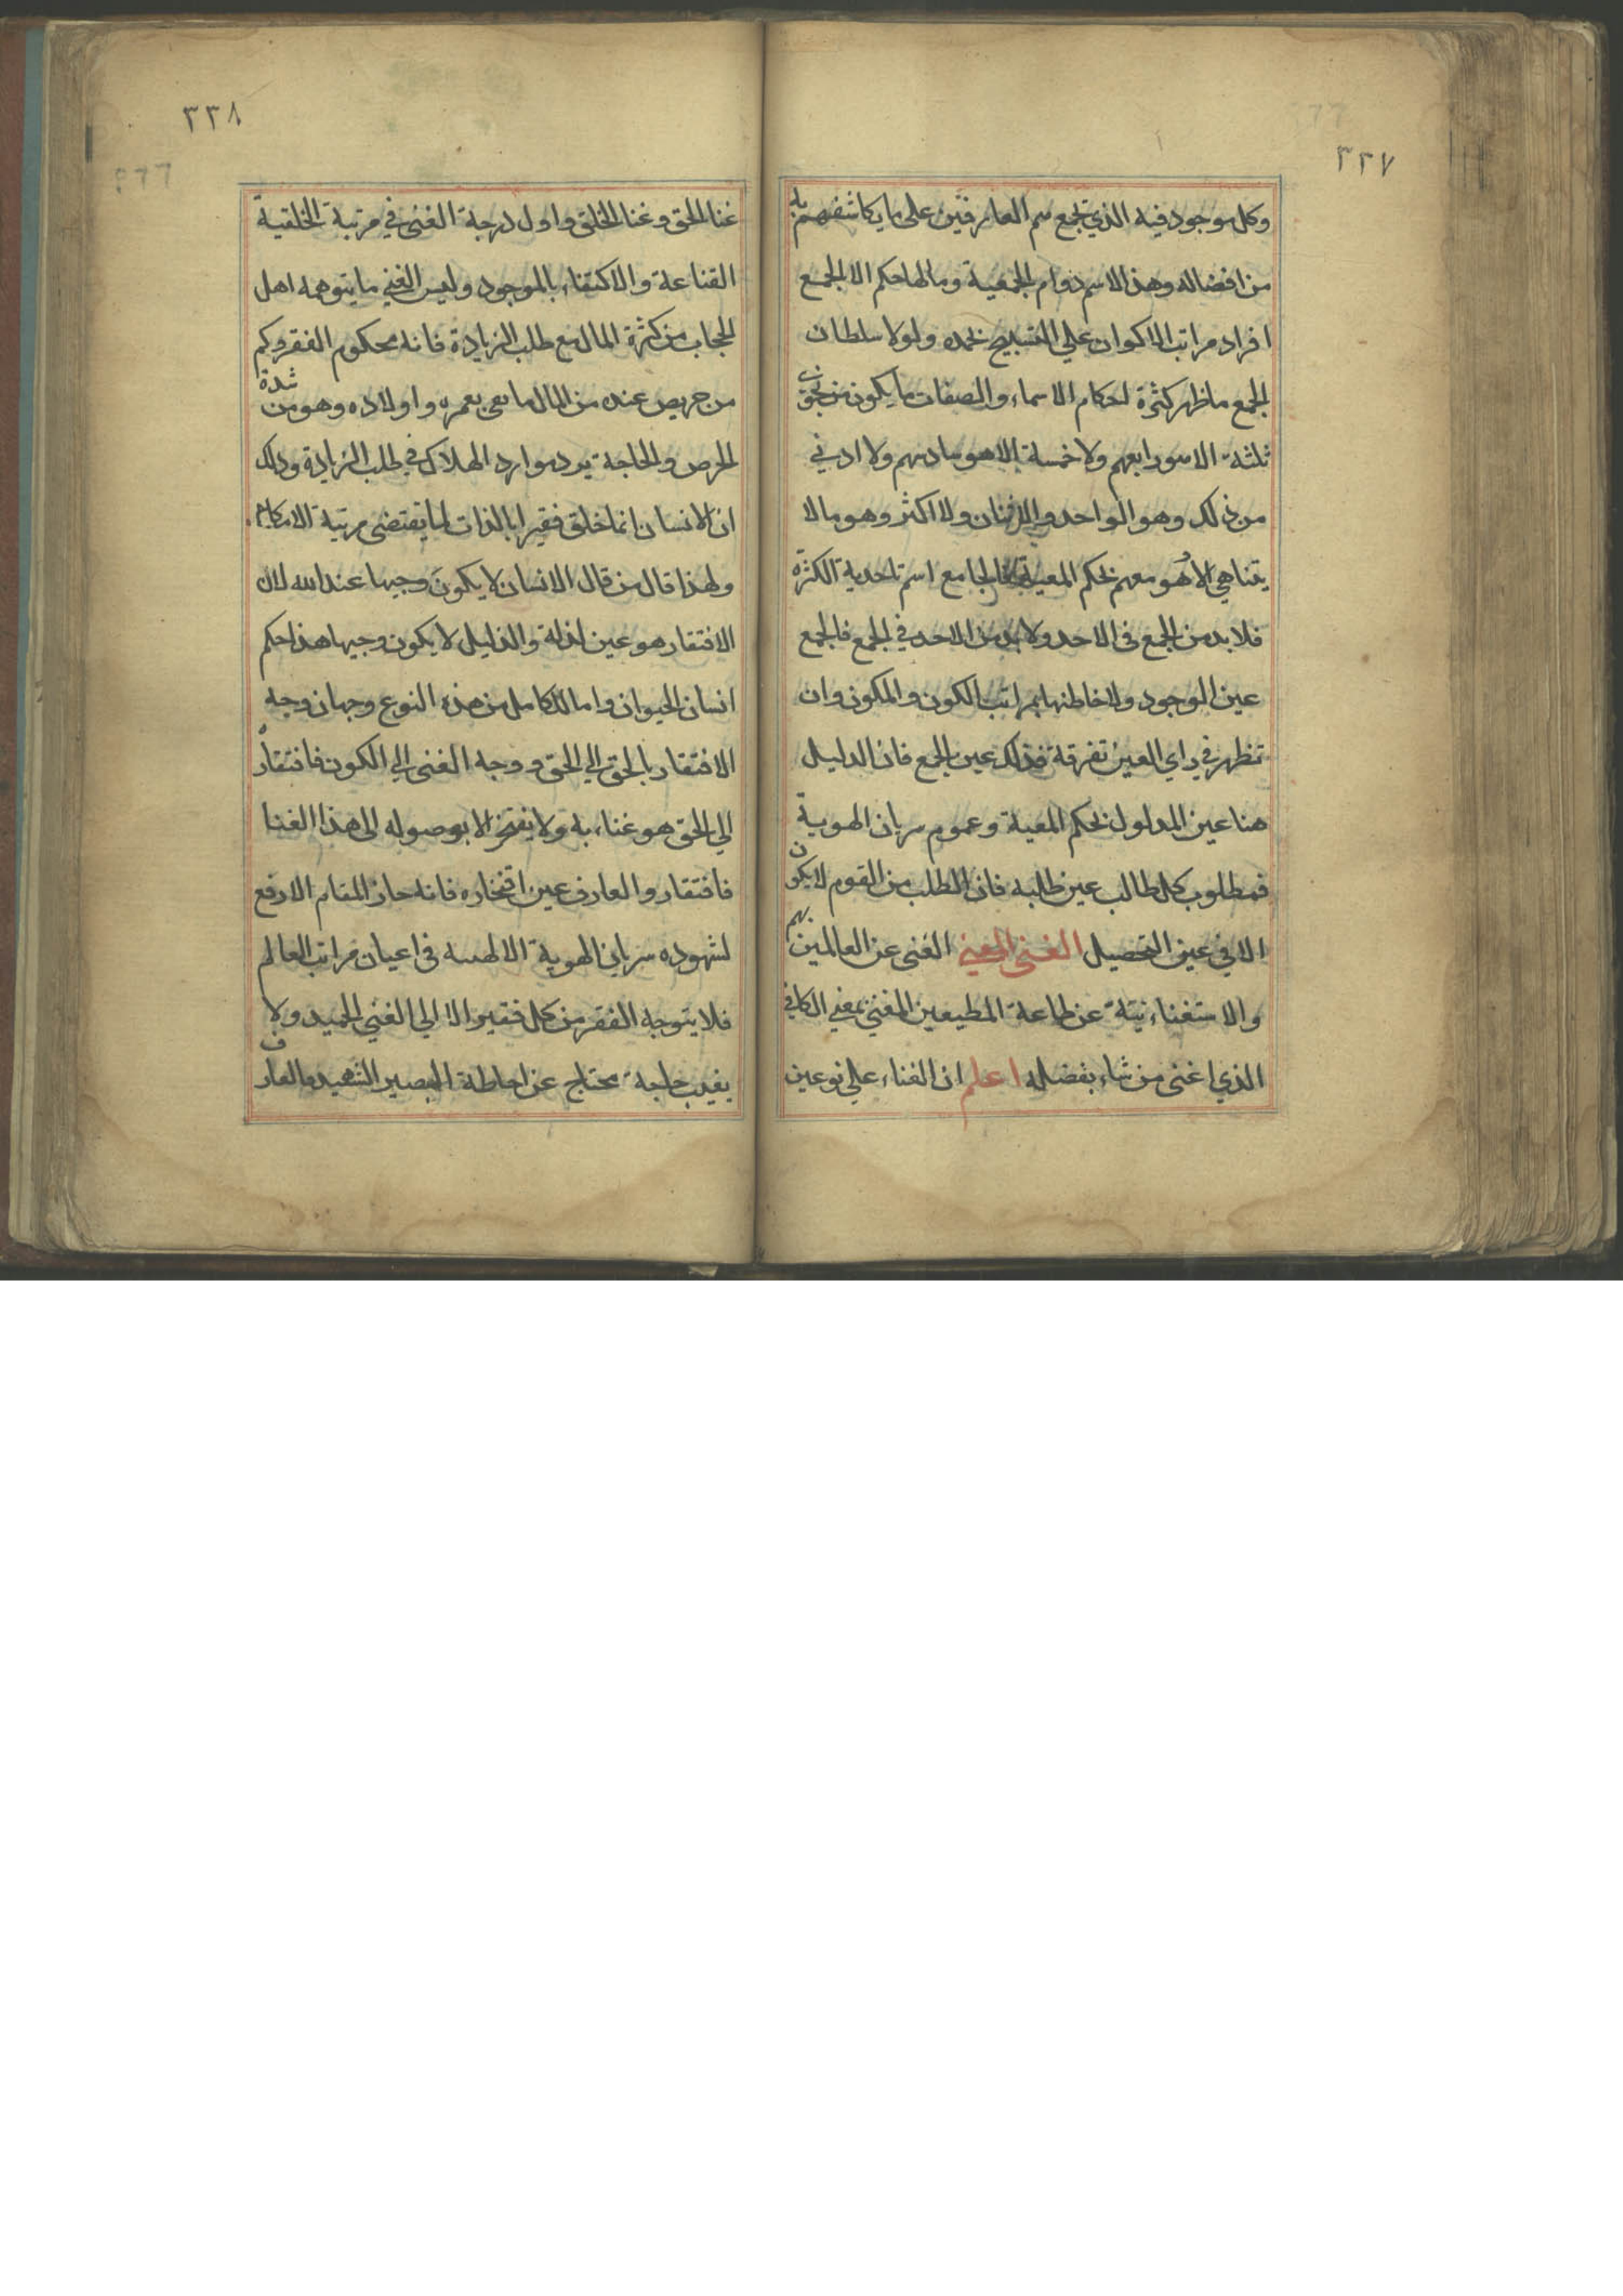 ٣٣٧
وكل موجود فيه الذي تجمع سم العارفين على ما يكاشفهم به
من افضاله وهذا الاسم دوام الجمعية وما لها حكم الا الجمع
افراد مراتب الاكوان علي التسبيح بحمده ولولا سلطان
الجمع ما ظهر كثرة احكام الاسماء والصفات ما يكون من نجوى
ثلثة الا هو رابعهم ولا خمسة الا هو سادسهم ولا ادني
من ذلك وهو الواحد والاثنان ولا اكثر وهو ما لا
يتناهي الا هو معهم بحكم المعية الجامع اسم تاحدية الكثرة
فلا بد من الجمع فى الاحد ولا بد من الاحد في الجمع فالجمع
عين الوجود ولاحاطتها بمراتب الكون والمكون وان
تظهر في راي العين تفرقة فذلك عين الجمع فان الدليل
هنا عين المدلول بحكم المعية وعموم سريان الهوية
فمطلوب كل طالب عين طلبه فان الطلب من القوم لا يكون
الا في عين التحصيل الغنى المغني الغنى عن العالمين بهم
والاستغناء نيتة عن طاعة المطيعين المغني بمعني الكافي
الذي اغنى من شاء بفضله اعلم ان الغناء علي نوعين
٣٣٨
غنا الحق وغنا الخلق واول درجة الغنى في مرتبة الخلقية
القناعة والاكتفاء بالموجود وليس الغني ما يتوهمه اهل
الحجاب من كثرة المال مع طلب الزيادة فانه محكوم الفقر وكم
من حريص عنده من المال ما يفى بعمره واولاده وهو من شدة
الحرص والحاجة يرد موارد الهلاك في طلب الزيادة وذلك
ان الانسان انما خلق فقيرا بالذات لما يقتضى مرتبة الامكان
ولهذا قال من قال الانسان لا يكون وجيها عند الله لان
الافتقار هو عين لذلة والذليل لا يكون وجيها هذا حكم
انسان الحيوان واما الكامل من هذه النوع وجهان وجه
الافتقار بالحق الي الحق ووجه الغنى الي الكون فافتقاره
الي الحق هو غناء به ولا يفتخر الا بوصوله الى هذا الغنا
فافتقار والعارف عين افتخاره فانه حاز المقام الارفع
لشهوده سريان الهوية الالهىىه فى اعيان مراتب العالم
فلا يتوجه الفقر من كل فقير الا الي الغني الحميد ولا
يغيب حاجة محتاج عن احاطة البصير الشهيد والعارف